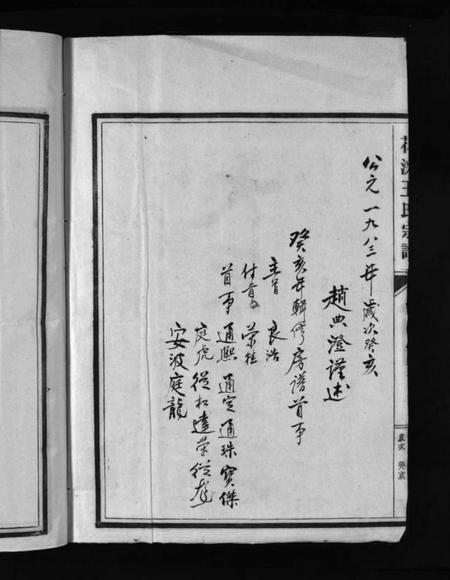 公元一九八三年歲次癸亥
趙典澄謹述
癸亥年輯修房譜首事
主首 良浩
付首 荣桂
首事 通熙 通定 通珠 寶傑
庭虎 從松 達荣 從彪
安波 庭龍
王氏宗譜
歲次 癸亥